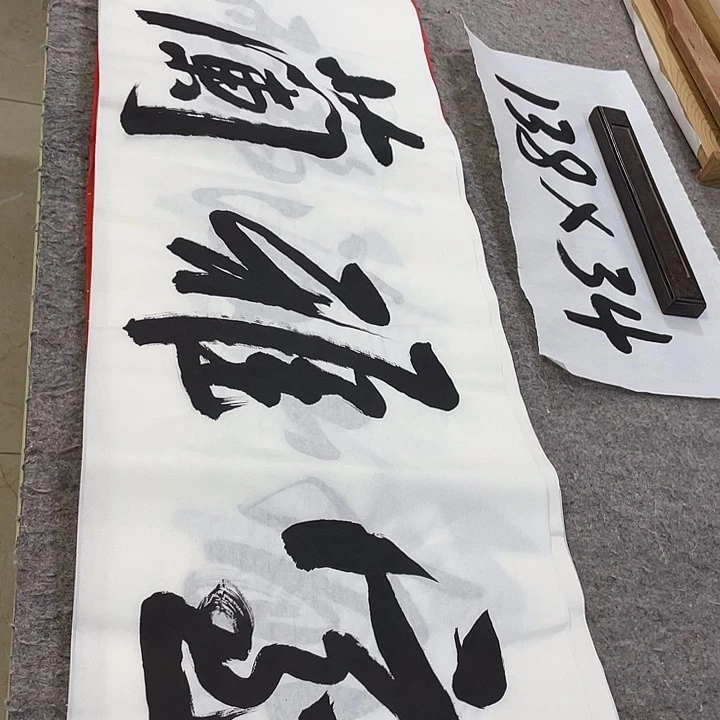 室雅蘭
138×34